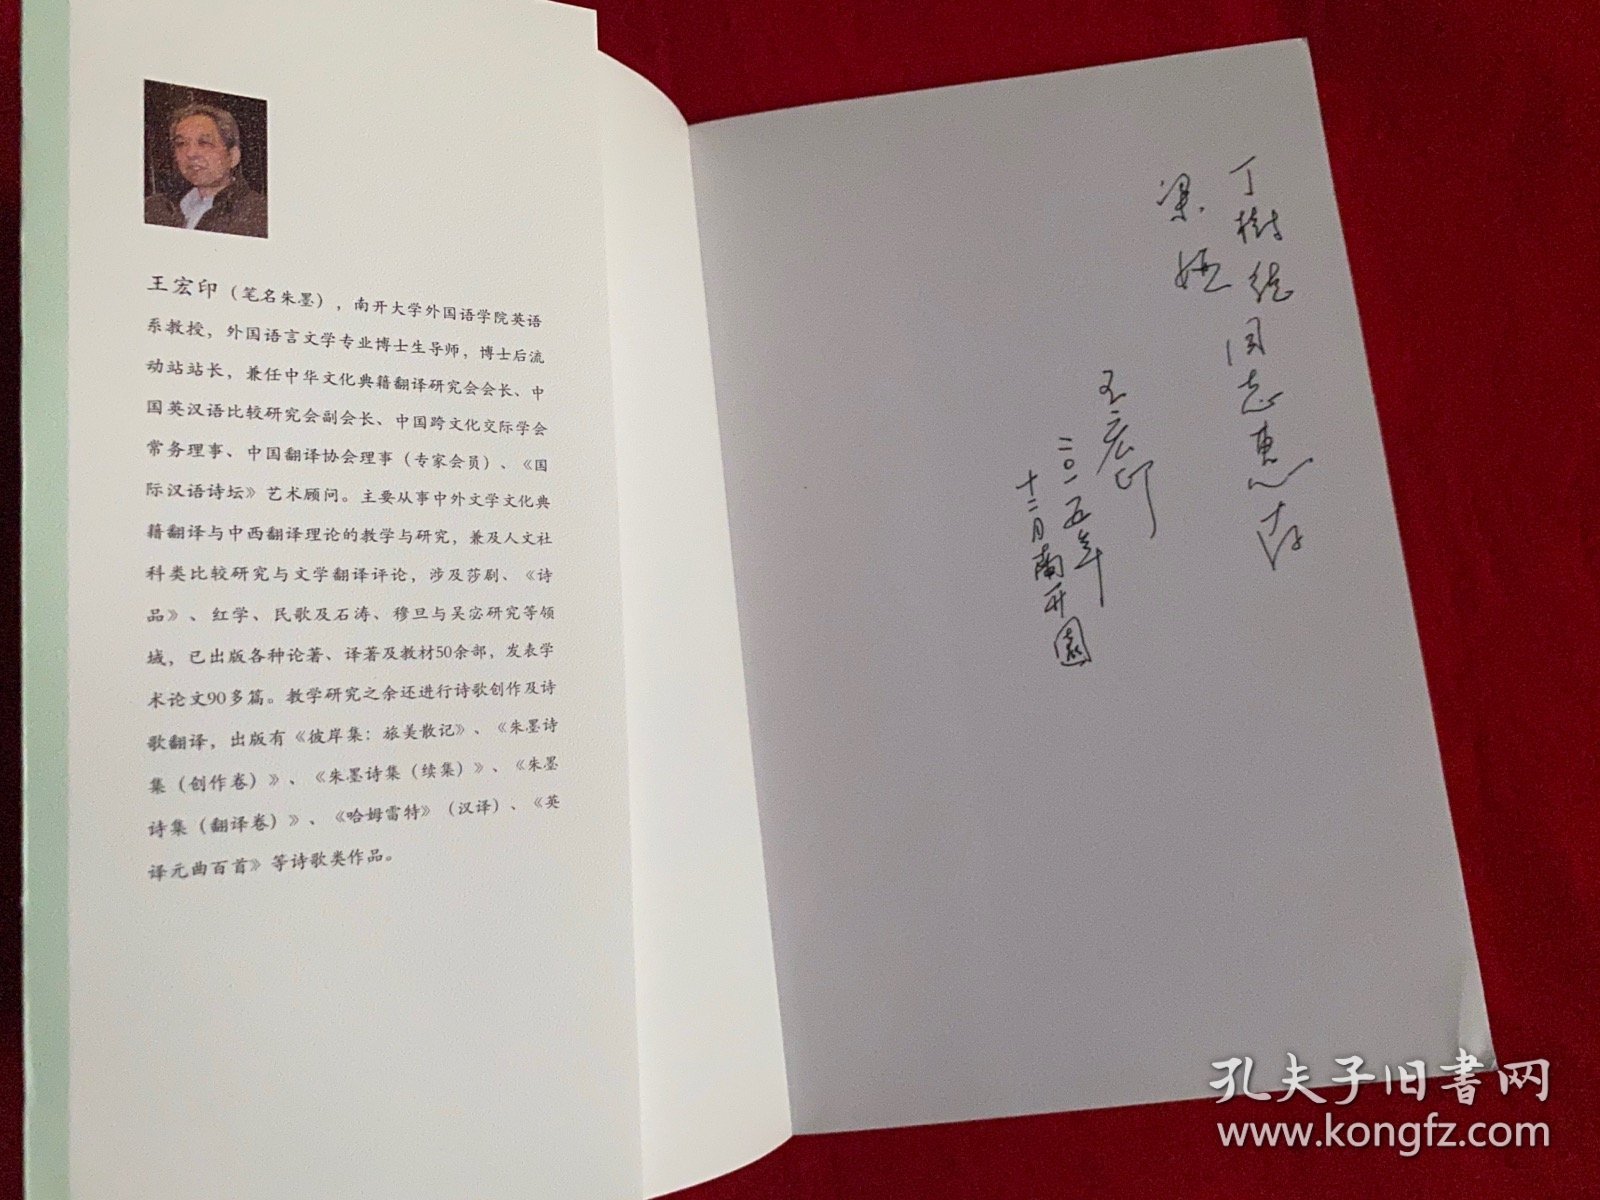 王宏印（笔名朱墨），南开大学外国语学院英语
系教授，外国语言文学专业博士生导师，博士后流
动站站长，兼任中华文化典籍翻译研究会会长、中
国英汉语比较研究会副会长、中国跨文化交际学会
常务理事、中国翻译协会理事（专家会员）、《国
际汉语诗坛》艺术顾问。主要从事中外文学文化典
籍翻译与中西翻译理论的教学与研究，兼及人文社
科类比较研究与文学翻译评论，涉及莎剧、《诗
品》、红学、民歌及石涛、穆旦与吴宓研究等领
域，已出版各种论著、译著及教材50余部，发表学
术论文90多篇。教学研究之余还进行诗歌创作及诗
歌翻译，出版有《彼岸集：旅美散记》、《朱墨诗
集（创作卷）》、《朱墨诗集（续集）》、《朱墨
诗集（翻译卷）》、《哈姆雷特》（汉译）、《英
译元曲百首》等诗歌类作品。
丁樹德同志惠存
梁
王宏印
二〇一五年
十二月南开園
孔夫子旧书网
www.kongfz.com